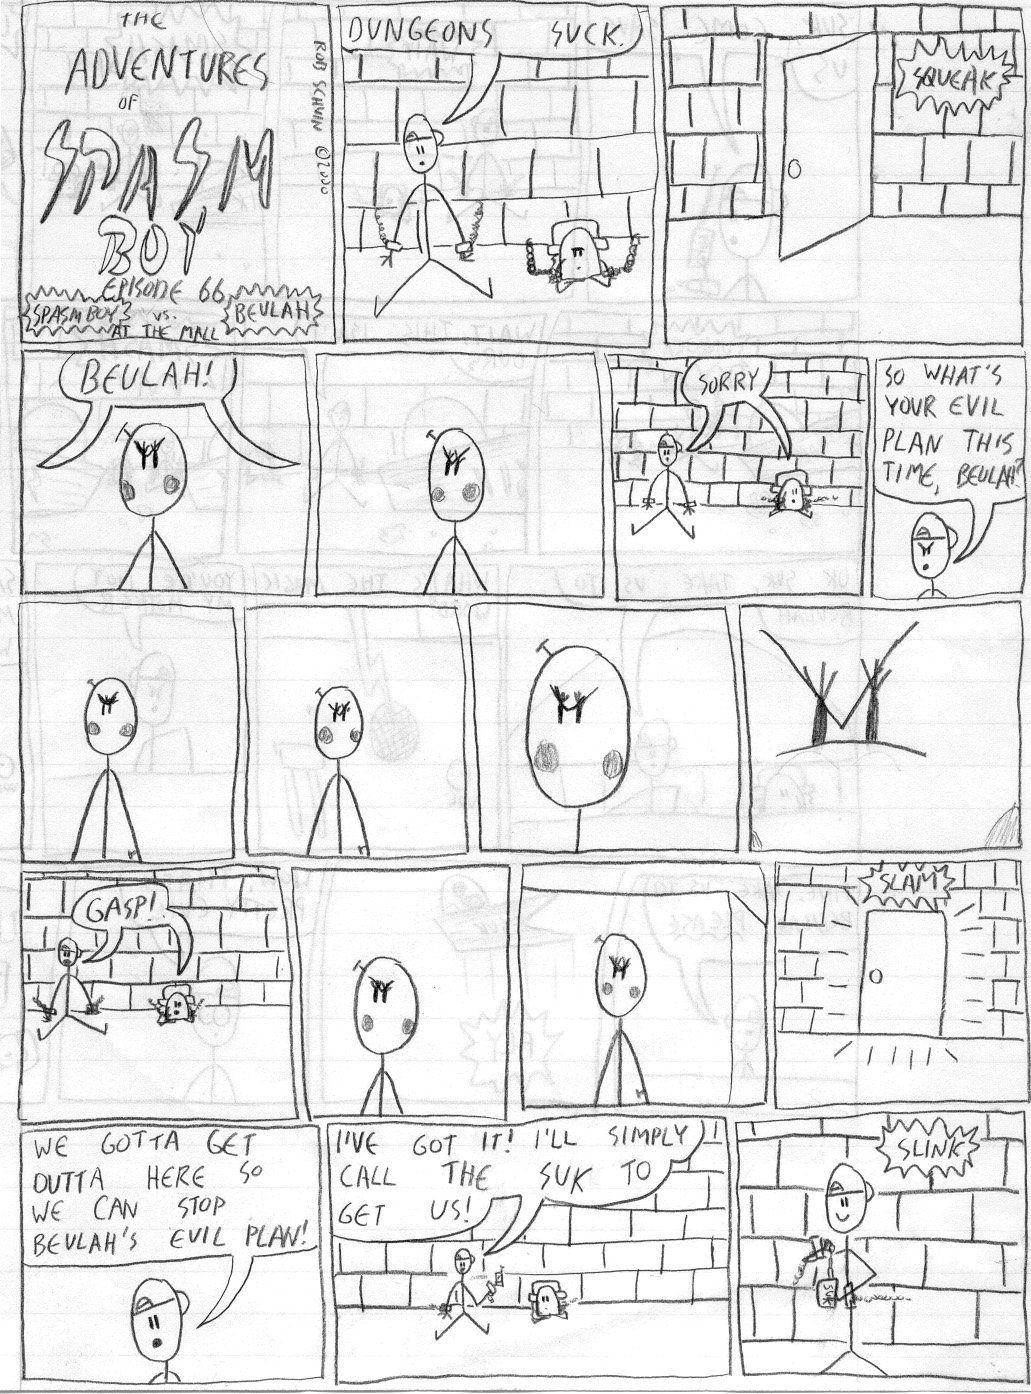 THE
ADVENTURES
OF
SPASM
BOY
EPISODE 66
SPASM BOY vs. BEULAH
AT THE MALL
ROB SCHVIN ©2000
DUNGEONS SUCK.
SQUEAK
BEULAH!
SORRY
SO WHAT'S
YOUR EVIL
PLAN THIS
TIME, BEULAH?
GASP!
SLAM
WE GOTTA GET
OUTTA HERE SO
WE CAN STOP
BEULAH'S EVIL PLAN!
I'VE GOT IT! I'LL SIMPLY
CALL THE SUK TO
GET US!
SLINK
SUK